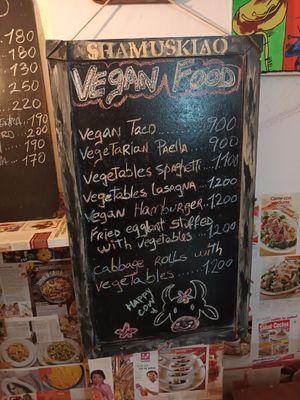 SHAMUSKIAO
VEGAN FOOD
VEGAN TACO........900
VEGETARIAN PAELLA...900
VEGETABLES SPAGHETTI...1100
VEGETABLES LASAGNA...1200
VEGAN HAMBURGER...1200
FRIED EGGPLANT STUFFED
WITH VEGETABLES...1200
CABBAGE ROLLS WITH
VEGETABLES........1200
HAPPY
COW
180
190
130
250
220
210
190
200
190
170